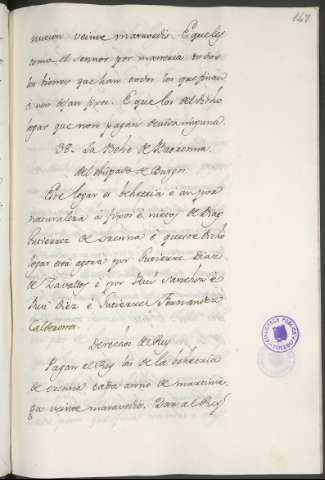 147
nueven veinte maravedis. E que les
toma el sennor por manneria todos
los bienes que han todos los que finan
é non dejan fijos. E que los del dicho
logar que non pagan devisa ninguna.
38. La Behe de Barzenna
del obispado de Burgos.
Este logar es behetria é an por
naturaleza á fijos é nietos de Diag
Gutierrez de Zavallos é que este dicho
logar era agora por Gutierre Diaz
de Zavallos é por Rui Sanchez é
Rui Diez é Gutierre Fernandez
Calderona.
Derechos del Rey
Pagan el Rey los de la behetria
de cada anno de martinie
ga veinte maravedis. Dan al Rey
BIBLIOTECA PUBLICA
TOLEDO